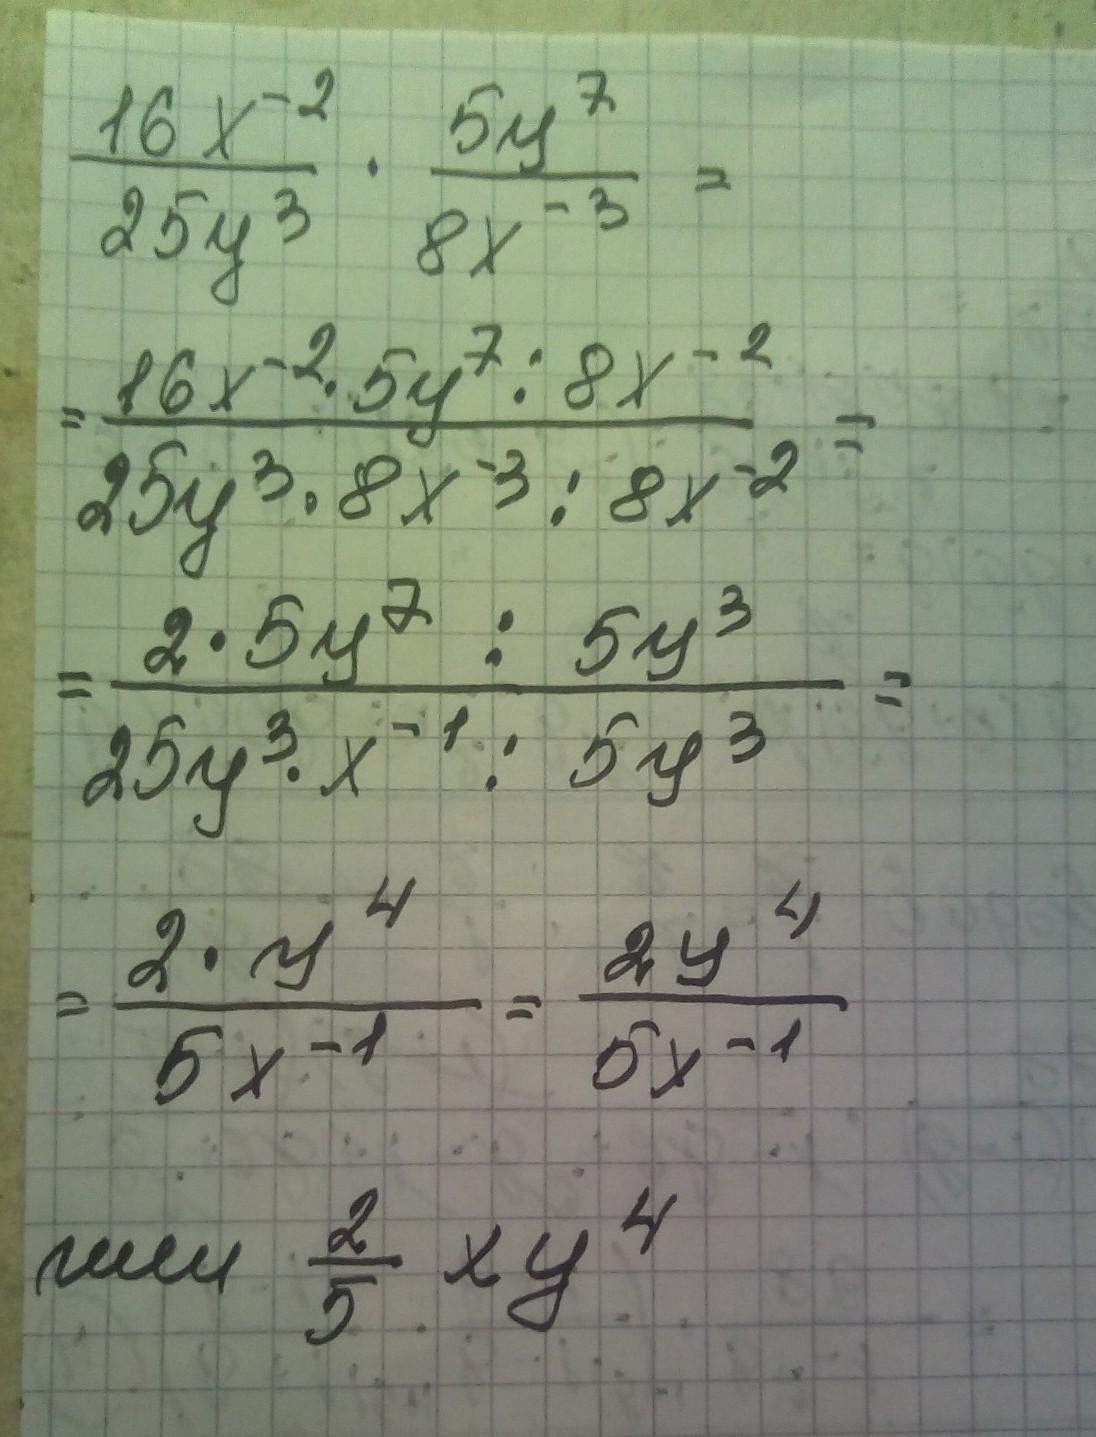 16x⁻² / 25y³ · 5y⁷ / 8x⁻³ =
= 16x⁻² · 5y⁷ : 8x⁻² / 25y³ · 8x⁻³ : 8x⁻² =
= 2 · 5y⁷ : 5y³ / 25y³ · x⁻¹ : 5y³ =
= 2 · y⁴ / 5x⁻¹ = 2y⁴ / 5x⁻¹
или 2/5 xy⁴